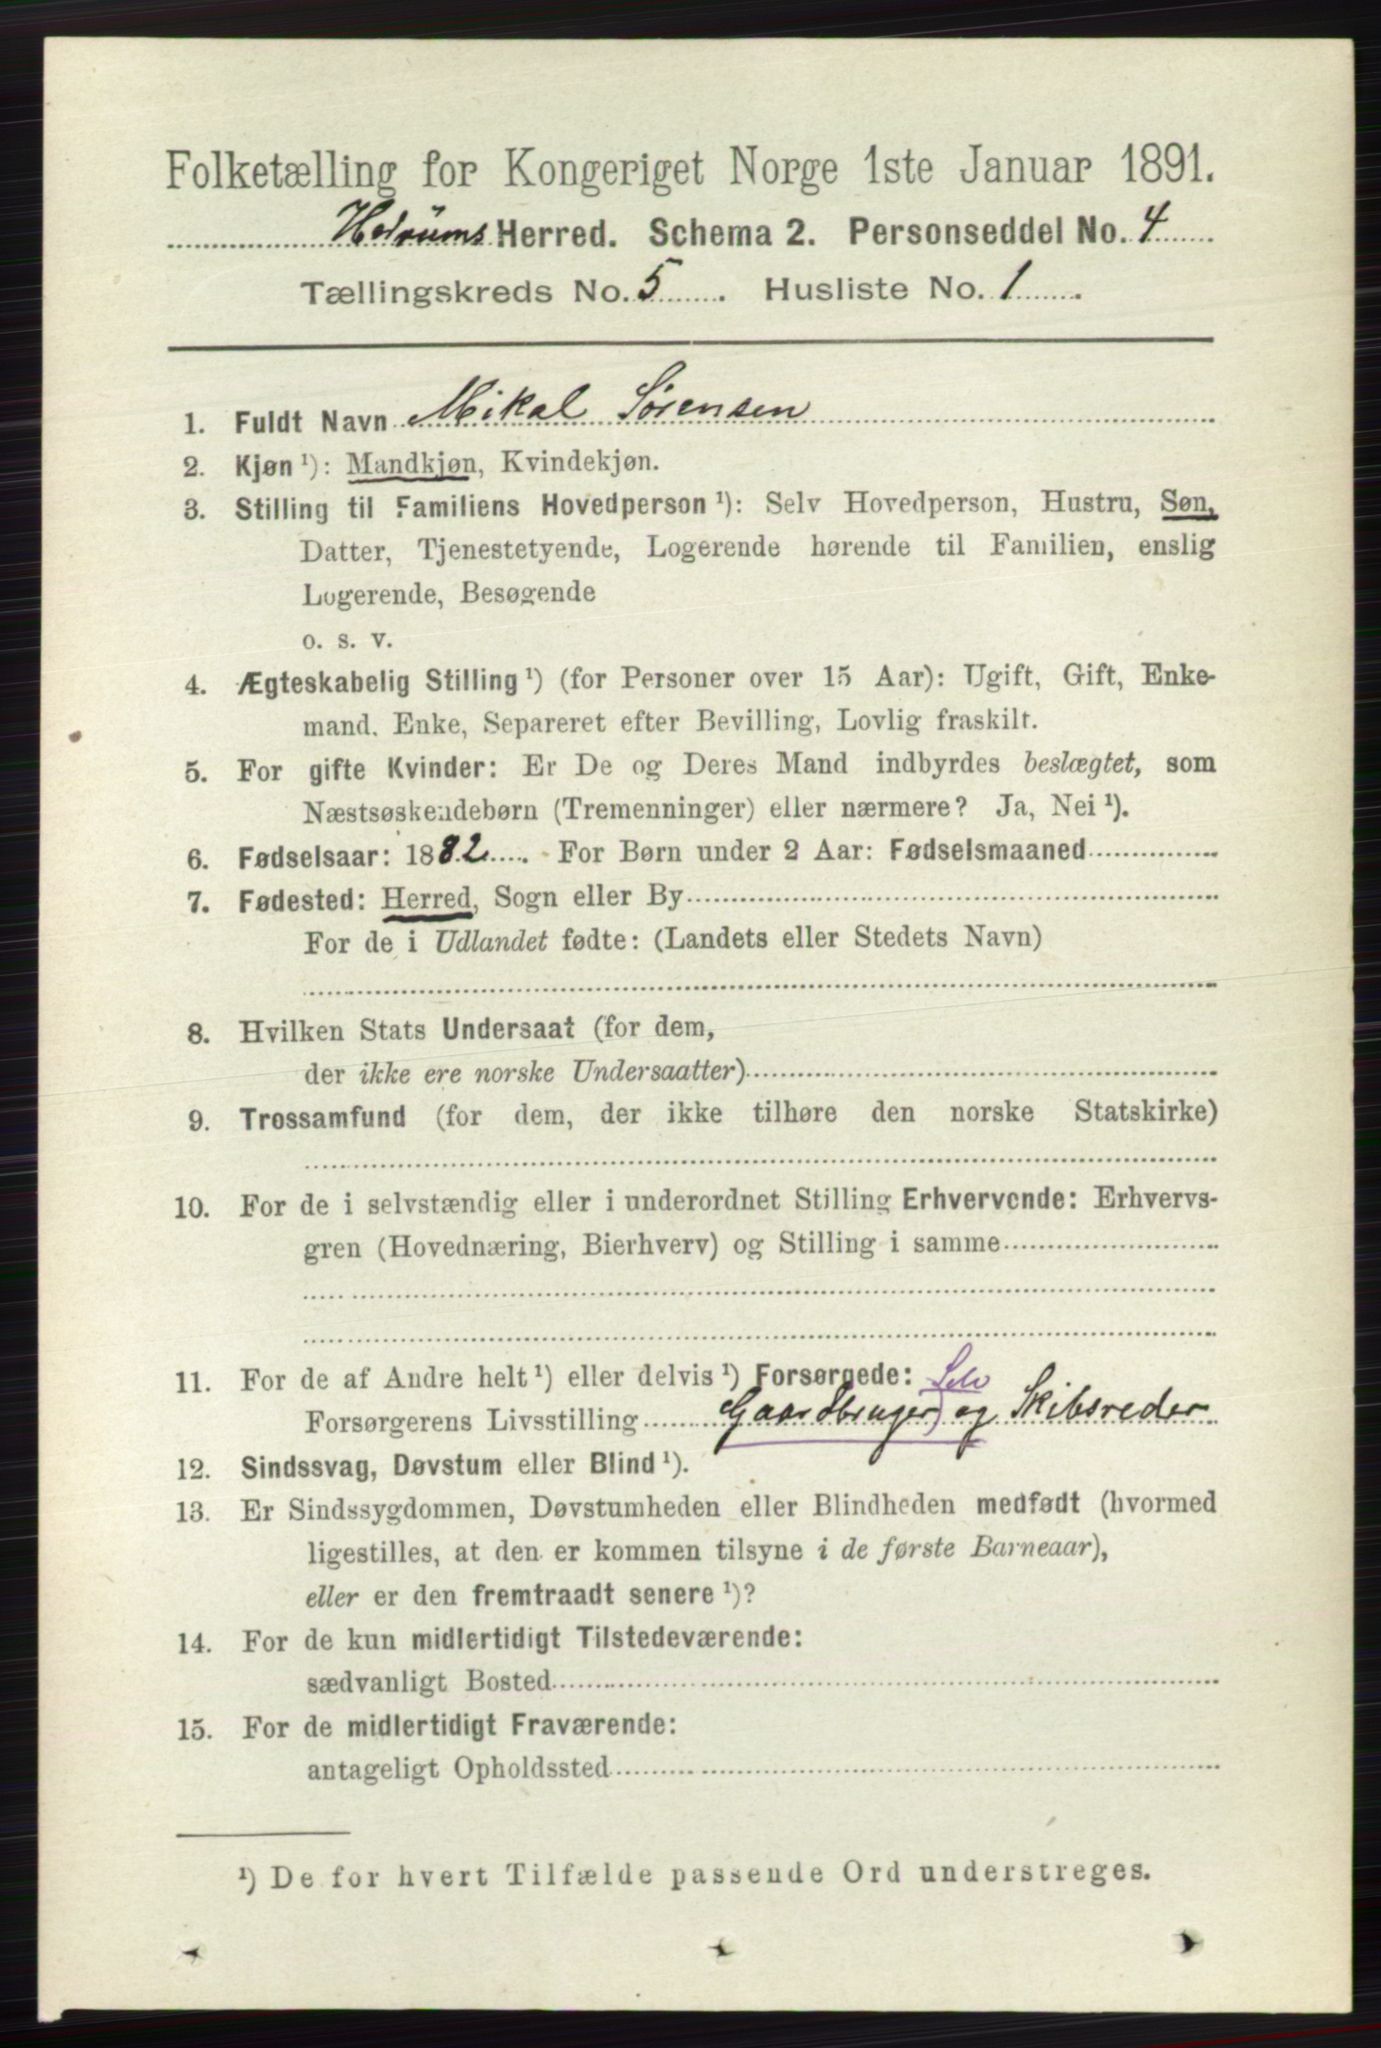 Folketælling for Kongeriget Norge 1ste Januar 1891.
Hedrums Herred. Schema 2. Personseddel No. 4
Tællingskreds No. 5. Husliste No. 1.
1. Fuldt Navn Mikal Sørensen
2. Kjøn ¹): Mandkjøn, Kvindekjøn.
3. Stilling til Familiens Hovedperson ¹): Selv Hovedperson, Hustru, Søn,
Datter, Tjenestetyende, Logerende hørende til Familien, enslig
Logerende, Besøgende
o. s. v.
4. Ægteskabelig Stilling ¹) (for Personer over 15 Aar): Ugift, Gift, Enke-
mand, Enke, Separeret efter Bevilling, Lovlig fraskilt.
5. For gifte Kvinder: Er De og Deres Mand indbyrdes beslægtet, som
Næstsøskendebørn (Tremenninger) eller nærmere? Ja, Nei ¹).
6. Fødselsaar: 1882. For Børn under 2 Aar: Fødselsmaaned
7. Fødested: Herred, Sogn eller By
For de i Udlandet fødte: (Landets eller Stedets Navn)
8. Hvilken Stats Undersaat (for dem,
der ikke ere norske Undersaatter)
9. Trossamfund (for dem, der ikke tilhøre den norske Statskirke)
10. For de i selvstændig eller i underordnet Stilling Erhvervende: Erhvervs-
gren (Hovednæring, Bierhverv) og Stilling i samme
11. For de af Andre helt ¹) eller delvis ¹) Forsørgede: Selv
Forsørgerens Livsstilling Gaardbruger) og Skibsreder
12. Sindssvag, Døvstum eller Blind ¹).
13. Er Sindssygdommen, Døvstumheden eller Blindheden medfødt (hvormed
ligestilles, at den er kommen tilsyne i de første Barneaar),
eller er den fremtraadt senere ¹)?
14. For de kun midlertidigt Tilstedeværende:
sædvanligt Bosted
15. For de midlertidigt Fraværende:
antageligt Opholdssted
¹) De for hvert Tilfælde passende Ord understreges.